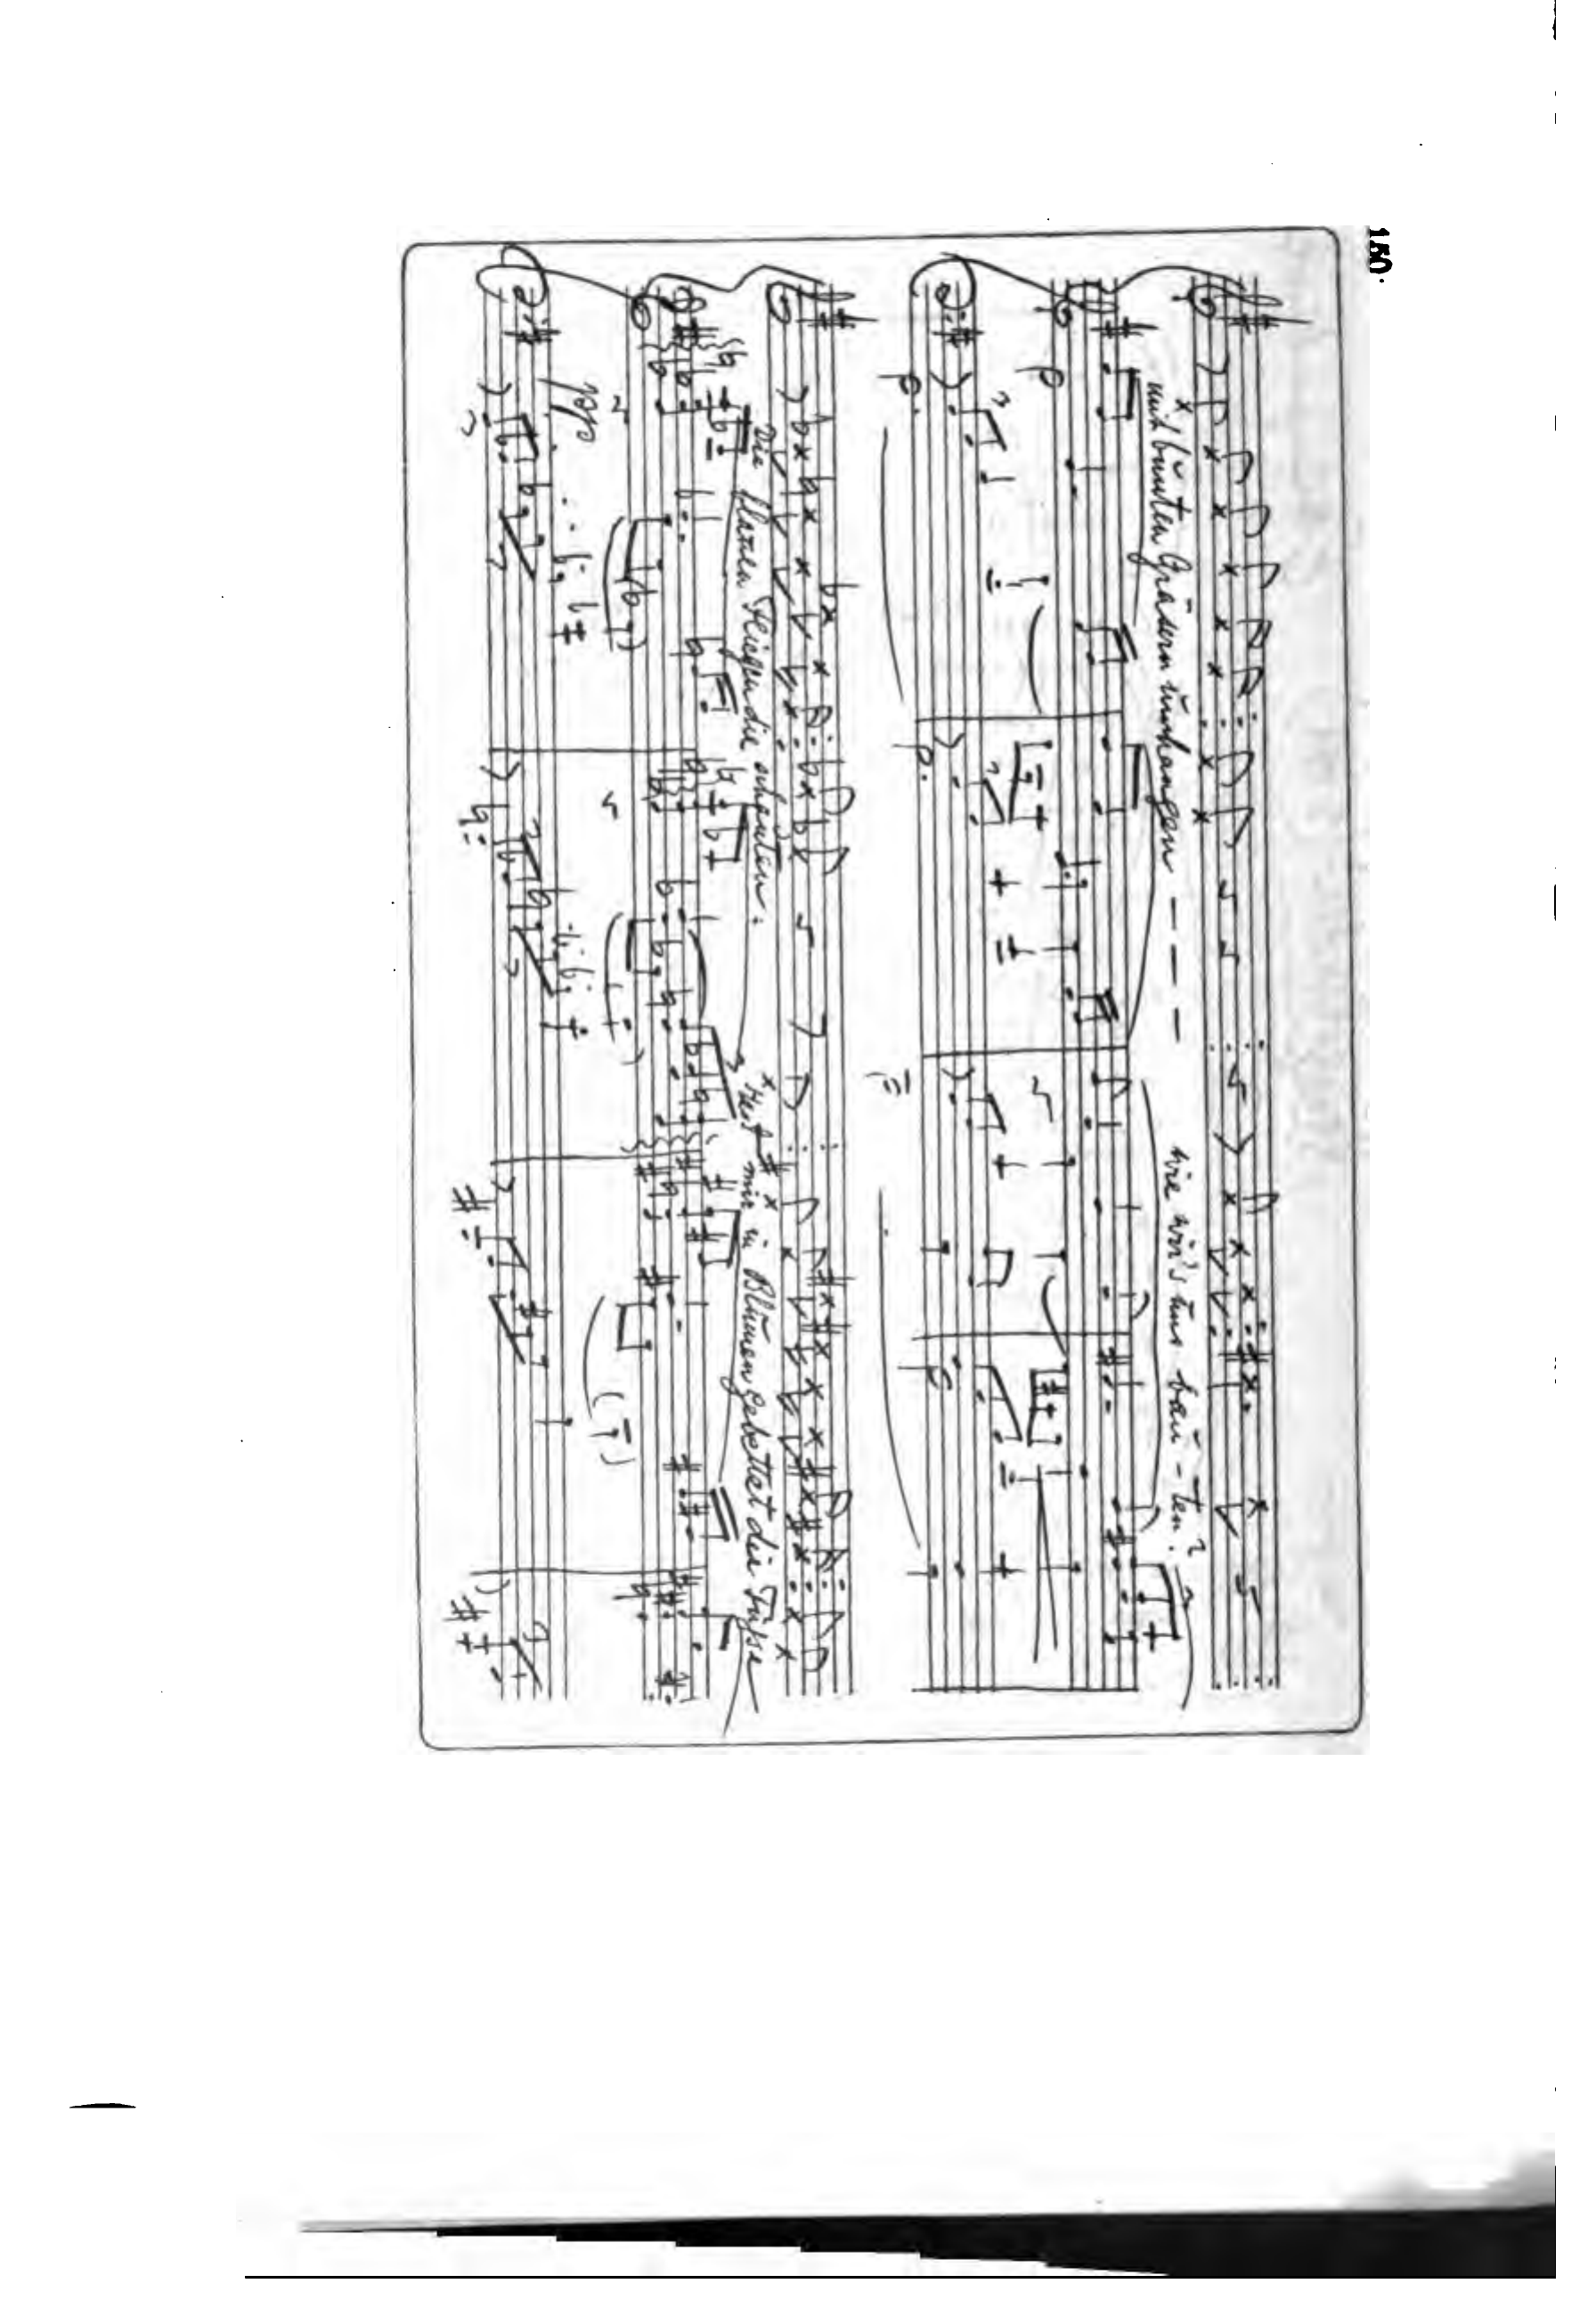 150.
mit bunten Gräsern umhangen — — — wie wir's uns bau-ten?
Die Harzen fliegen die schauten:
mir in Blumen gebettet die Füße